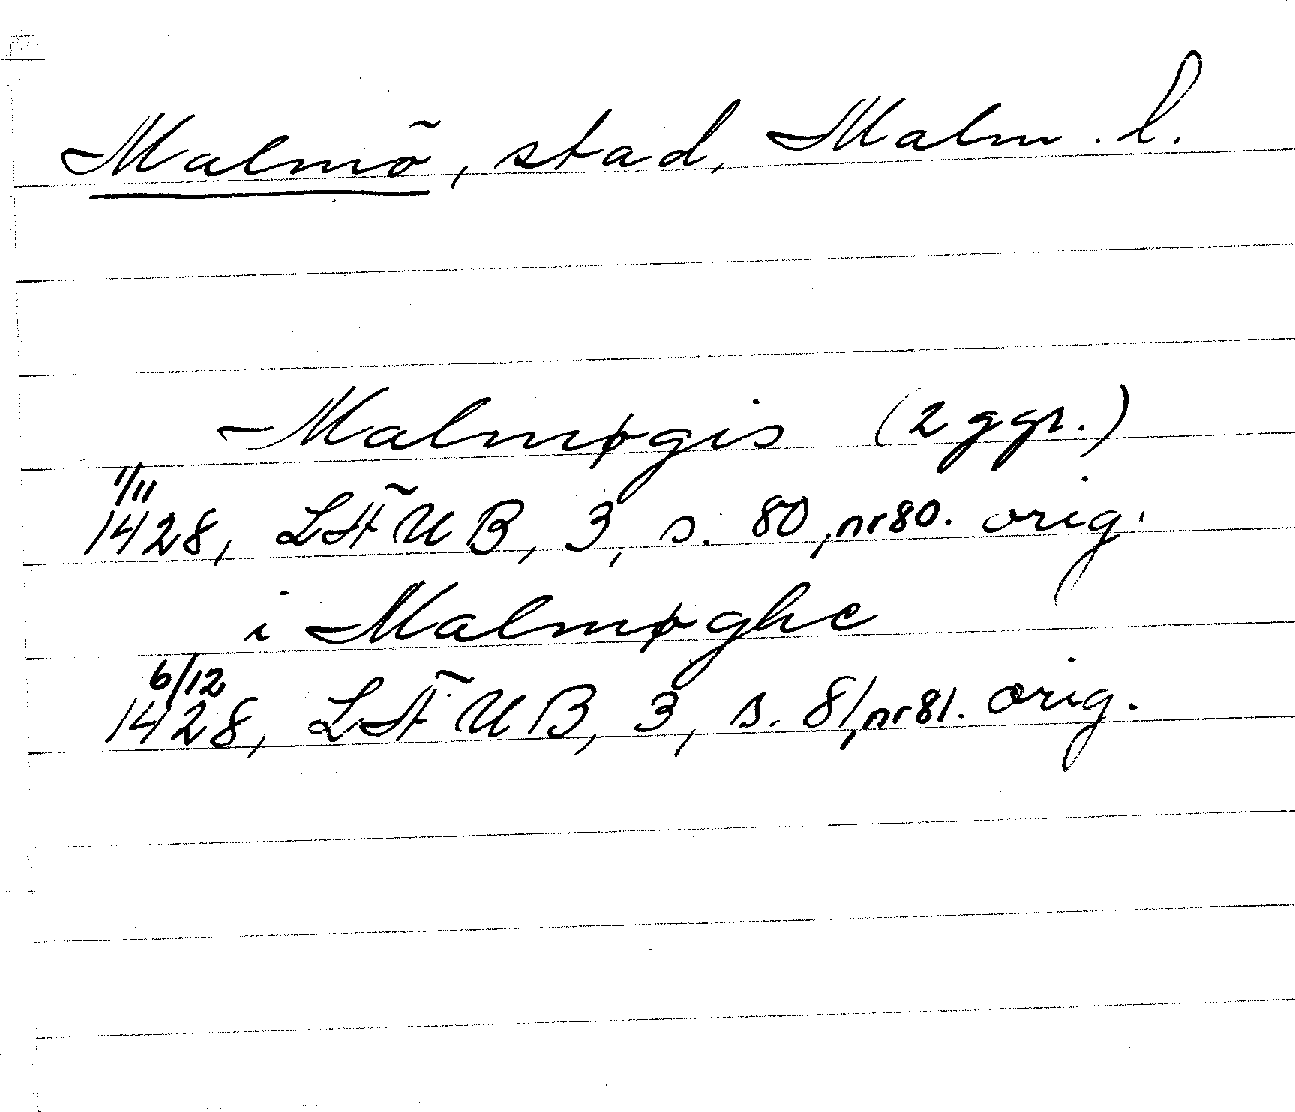 Malmö, stad, Malm. l.
Malmøgis (2 ggr.)
1/11
1428, LÄUB, 3, s. 80, nr 80. orig.
i Malmøghe
6/12
1428, LÄUB, 3, s. 81, nr 81. orig.